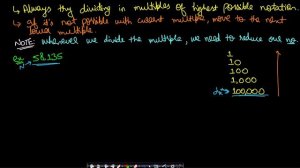 ↳ Always try dividing in multiples of highest possible notation.
↳ if it's not possible with current multiple, move to the next
lower multiple.
NOTE: Whenever we divide the multiple, we need to reduce our no.
Ex: 58,135
N
1
10
100
1,000
100,000